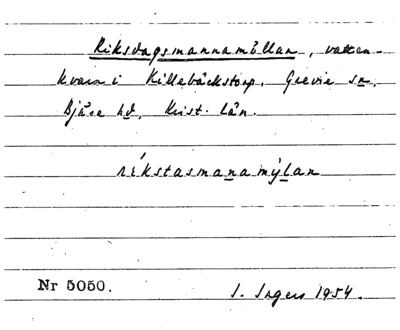 Riksdagsmannamöllan, vatten-
kvarn i Killebäckstorp. Grevie sn,
Bjäre hd, Krist. län.
ríkstasmanamýlan
Nr 5050.
I. Ingers 1954.